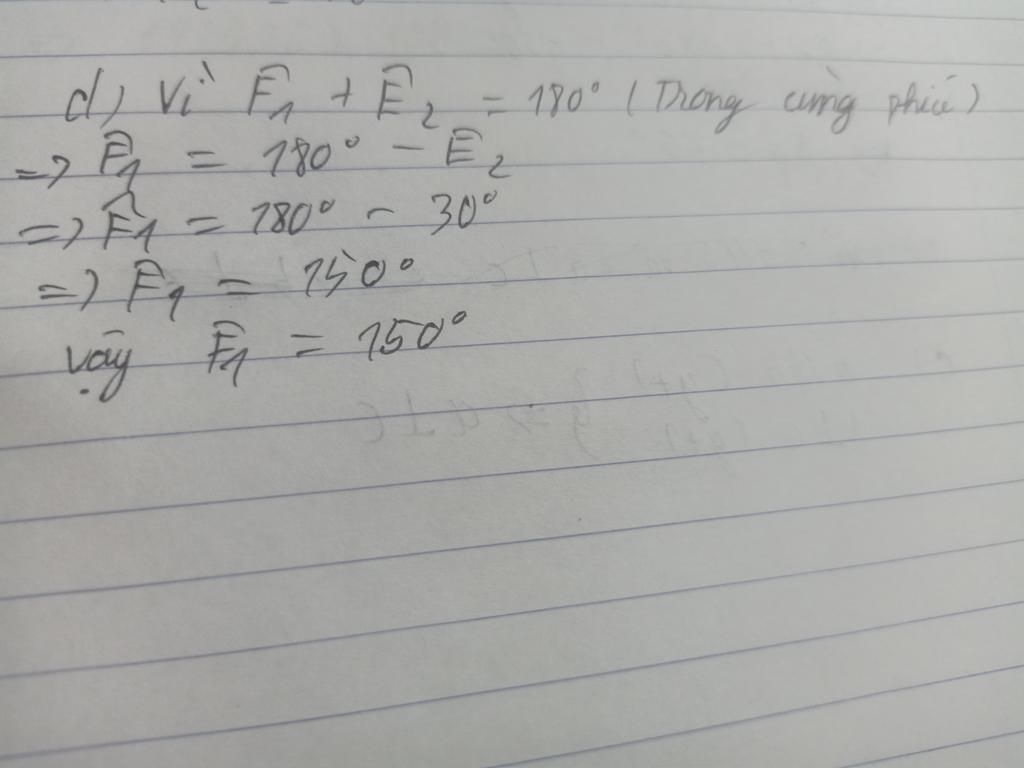 d) Vì F̂₁ + Ê₂ = 180° (Trong cùng phía)
=> F̂₁ = 180° - Ê₂
=> F̂₁ = 180° - 30°
=> F̂₁ = 150°
vậy F̂₁ = 150°